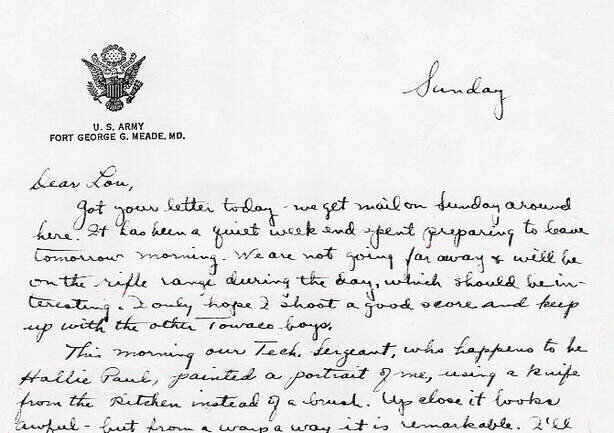 Sunday
U. S. ARMY
FORT GEORGE G. MEADE, MD.
Dear Lou,
Got your letter today - we get mail on Sunday around
here. It has been a quiet week end spent preparing to leave
tomorrow morning. We are not going far away & will be
on the rifle range during the day, which should be in-
teresting. I only hope I shoot a good score and keep
up with the other Towaco boys.
This morning our Tech. Sergeant, who happens to be
Hallie Paul, painted a portrait of me, using a knife
from the kitchen instead of a brush. Up close it looks
awful - but from a ways away it is remarkable. I'll